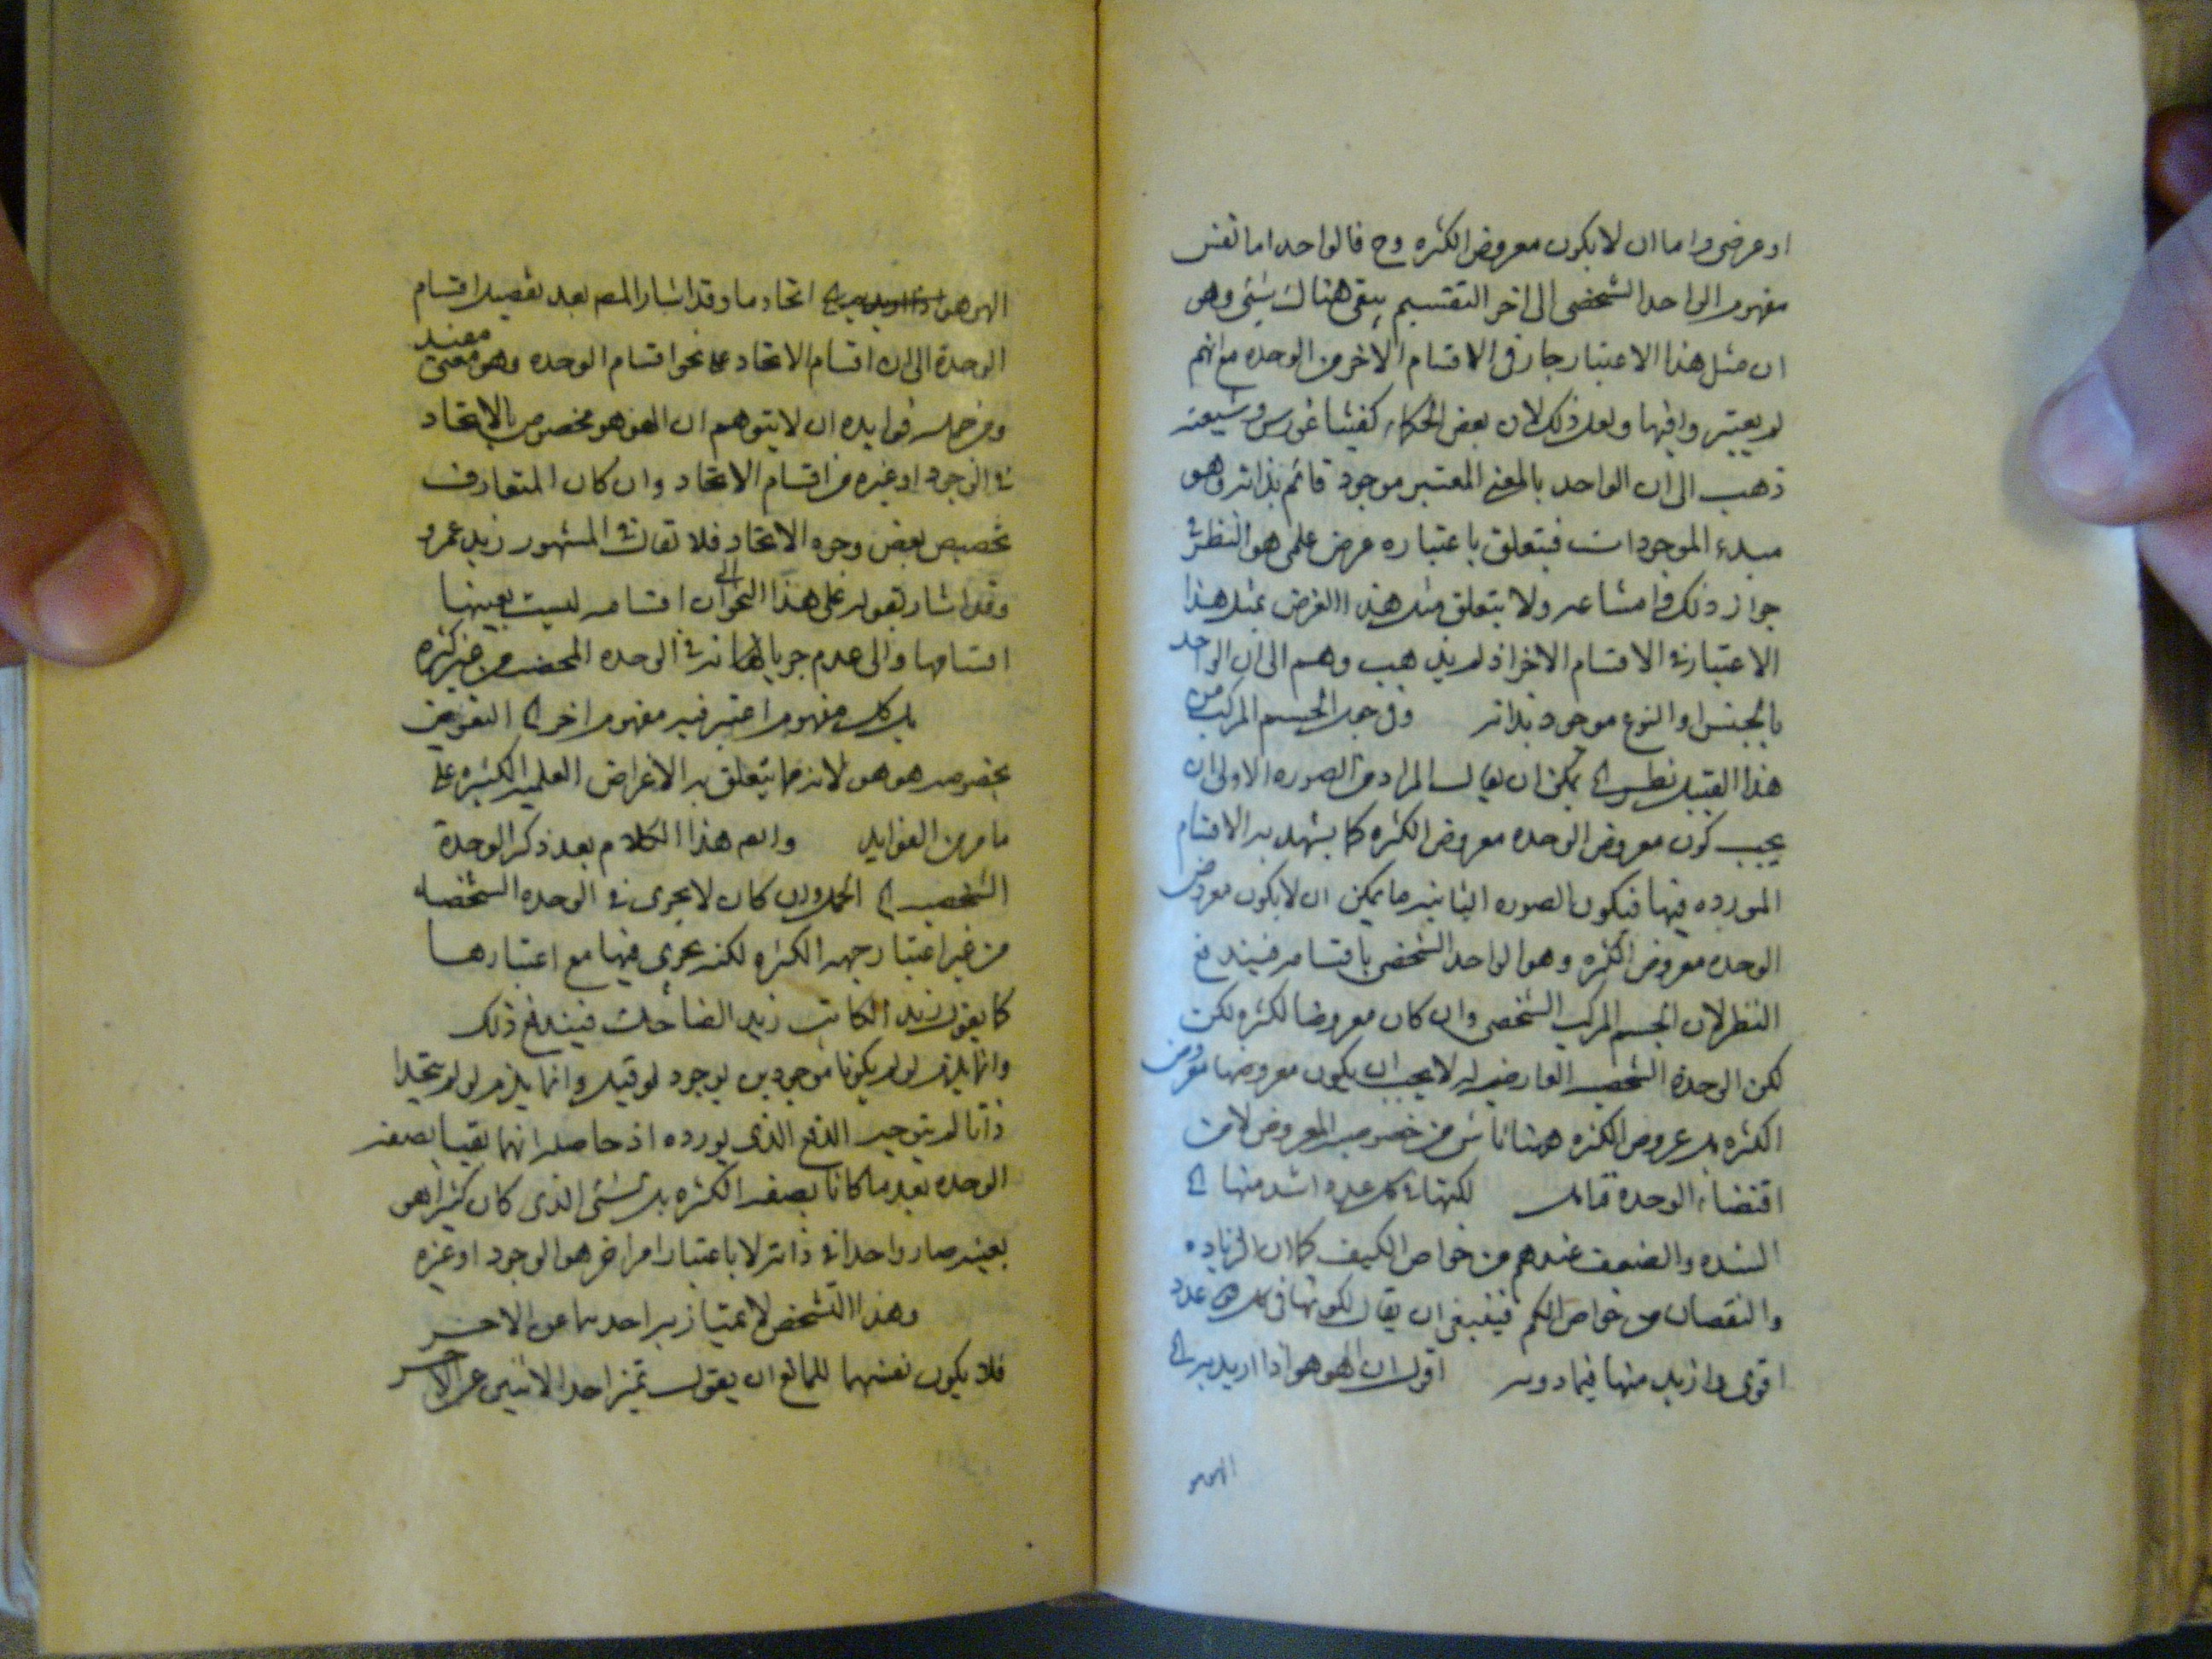 او عرضى واما ان لا يكون معروض الكثره وح فالواحد اما نفس
مفهوم الواحد الشخصى الى اخر التقسيم يبقى هناك شئى وهو
ان مثل هذا الاعتبار جار فى الاقسام الاخر من الوحده مع انهم
لم يعتبروا فيها ولعل ذلك لان بعض الحكماء كفيثاغورس وشيعته
ذهب الى ان الواحد بالمعنى المعتبر موجود قائم بذاته وهو
مبدء الموجودات فيتعلق باعتباره غرض علمى هو النظر فى
جواز ذلك وامتناعه ولا يتعلق مثل هذا الغرض بمثل هذا
الاعتبار فى الاقسام الاخر اذ لم يذهب وهم الى ان الواحد
بالجنس او النوع موجود بذاته وفى جعل الجسم المركب من
هذا القبيل نظر الخ يمكن ان يقال المراد من الصوره الاولى ان
يجب كون معروض الوحده معروض الكثره كما يشهد به الاقسام
المورده فيها فيكون الصوره الثانيه ما يمكن ان لا يكون معروض
الوحده معروض الكثره وهو الواحد الشخصى باقسامه فيندفع
النظر لان الجسم المركب الشخصى وان كان معروضا لكثره لكن
لكن الوحدة الشخصيه العارضه له لا يجب ان يكون معروضها معروض
الكثره بل عروض الكثره هيهنا ناش من خصوصيه المعروض لا من
اقتضاء الوحدة قال لكنها فى كل عدد اشد منها الخ
الشده والضعف عندهم من خواص الكيف كما ان الزياده
والنقصان من خواص الكم فينبغى ان يقال لكونها فى كل عدد
اقوى وازيد منها فيما دونه اقول ان الهو هو اذا اريد به الخ
الهوهو
الهو هو اتحاد ما وقد اشار المصه بعد تفصيل اقسام
الوحدة الى ان اقسام الاتحاد على نحو اقسام الوحده وهو معنى مفيد
ومن جمله فوايده ان لا يتوهم ان الهو هو مخصوص بالاتحاد
فى الوجود او غيره من اقسام الاتحاد وان كان المتعارف
تخصيص بعض وجوه الاتحاد فلا يقال فى المشهور زيد عمرو
وقد اشار بقوله على هذا النحو الى ان اقسامه ليست بعينها
اقسامها والى عدم جريانه فى الوحده المحضه من غير كثره
بل كل مفهوم اعتبر فيه مفهوم اخر الخ التعرض
بخصوصه هو هو لانه مما يتعلق به الاغراض العلميه الكثيره على
ما مر من الفوايد والعم هذا الكلام بعد ذكر الوحدة
الشخصيه الخ الحمل وان كان لا يجرى فى الوحده الشخصيه
من غير اعتبار جهه الكثره لكنه يجرى فيها مع اعتبارها
كما يقول زيد الكاتب زيد الضاحك فيندفع ذلك
وانما يلزم لو لم يكونا موجودين بوجود لو قيل وانما يلزم لو لم يتحدا
ذاتا لم يتوجه الدفع الذى يورده اذ حاصله انهما بقيا بصفه
الوحده بعد ما كانا بصفه الكثره بل الشئى الذى كان كثيرا هو
بعينه صار واحدا فى ذاته لا باعتبار امر اخر هو الوجود او غيره
وهذا التشخص لامتياز به احدهما عن الاخر
فلا يكون نفسهما للمانع ان يقول تميز احد الاثنين عن الاخر